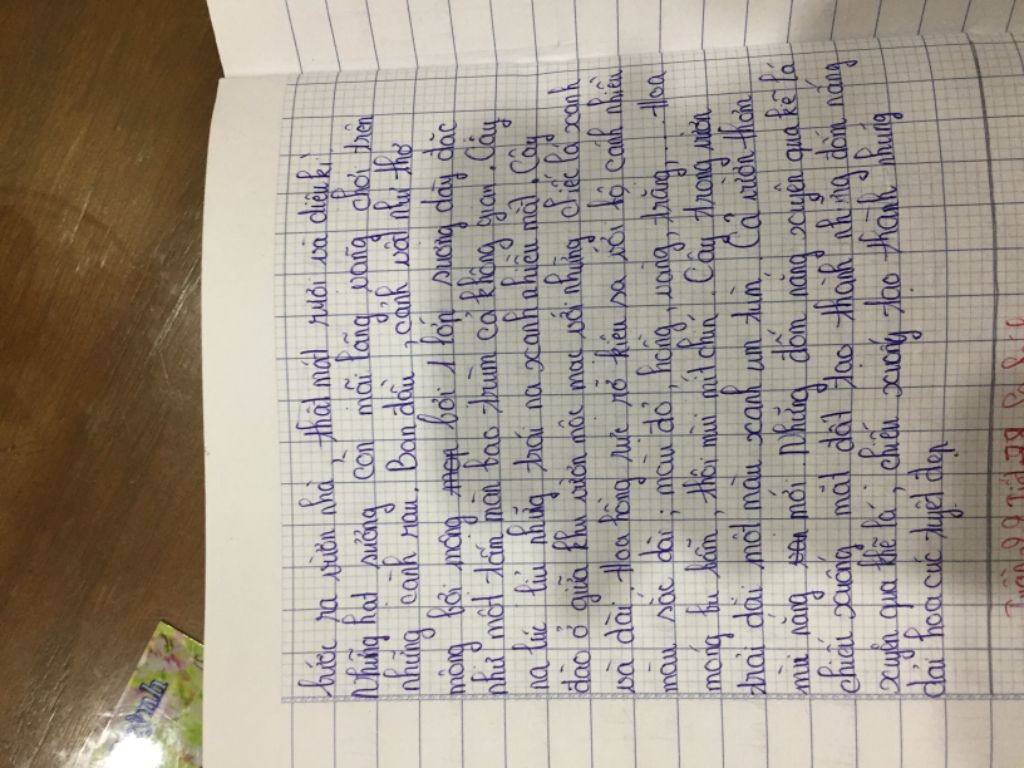 bước ra vườn nhà, thật mát rười và diệu kì
Những hạt sương con mải lãng vãng chơi trên
những cành rau. Ban đầu, cảnh vật như thơ
mộng bởi mỏng bởi 1 lớp sương dày đặc
như một tấm màn bao trùm cả không gian. Cây
na lúc lỉu những trái na xanh nhiều mắt. Cây
đào ở giữa khu vườn mộc mạc với những chiếc lá xanh
và dài. Hoa hồng rực rỡ kiêu sa với bộ cánh nhiều
màu sắc dài; màu đỏ, hồng, vàng, trắng,... Hoa
móng bu bấn, thôi mùi mít chín. Cây trong vườn
trải dài một màu xanh um tùm. Cả vườn thơm
mùi nắng mới. Những đốm nắng xuyên qua kẽ lá
chiếu xuống mặt đất tạo thành những đốm nắng
xuyên qua kẽ lá, chiếu xuống tạo thành những
dải hoa cúc tuyệt đẹp.